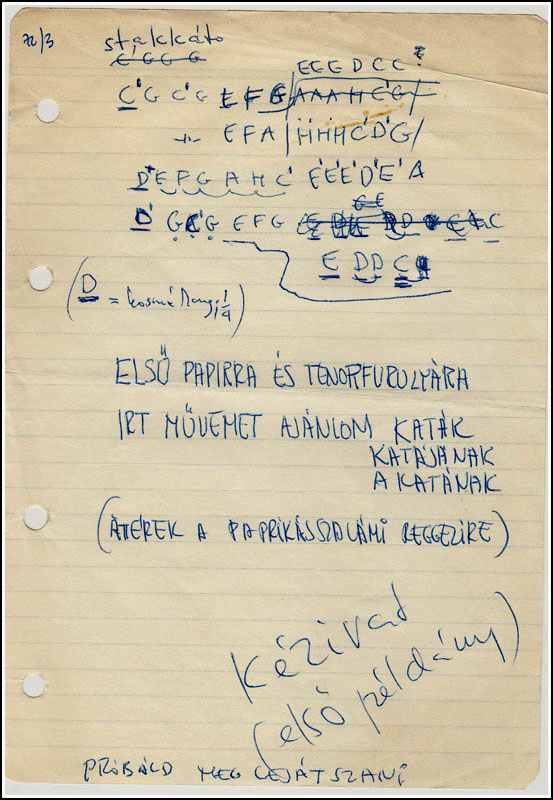 stakkáto
E G G G
EEE D C C'
C'G C'G E F G AAAHC'G
EFA HHHC'D'G
D E F G A H C' E'E'E'D'E'A
D' G C'G E F G
E DD C
(D =
ELSŐ PAPIRRA ÉS TENORFUROLYÁRA
IRT MŰVEMET AJÁNLOM KATÁK
KATÁJÁNAK
A KATÁNAK
(ÁTÉREK A PAPRIKÁSSZALÁMI REGGELIRE)
Kézirat
(első példány)
PRÓBÁLD MEG LEJÁTSZANI